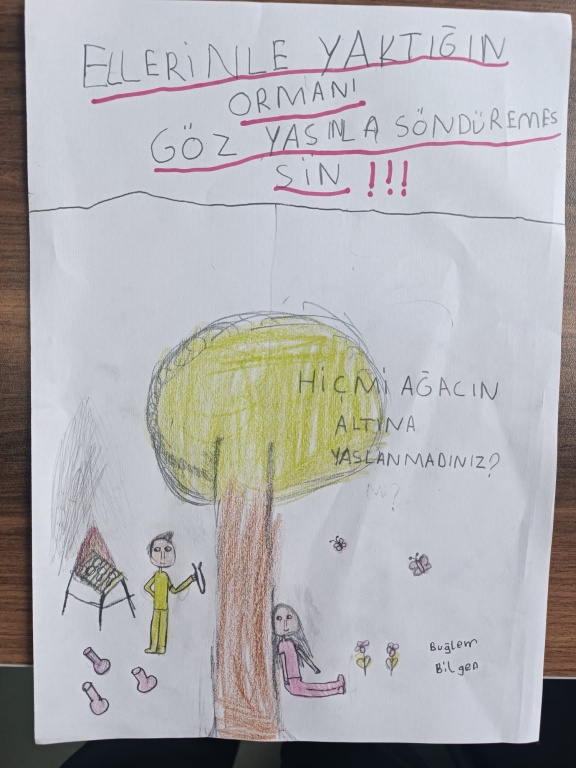 ELLERİNLE YAKTIĞIN
ORMANI
GÖZ YAŞINLA SÖNDÜREMES
SİN !!!
HİÇMİ AĞACIN
ALTINA
YASLANMADINIZ?
Buğlem
Bilgen